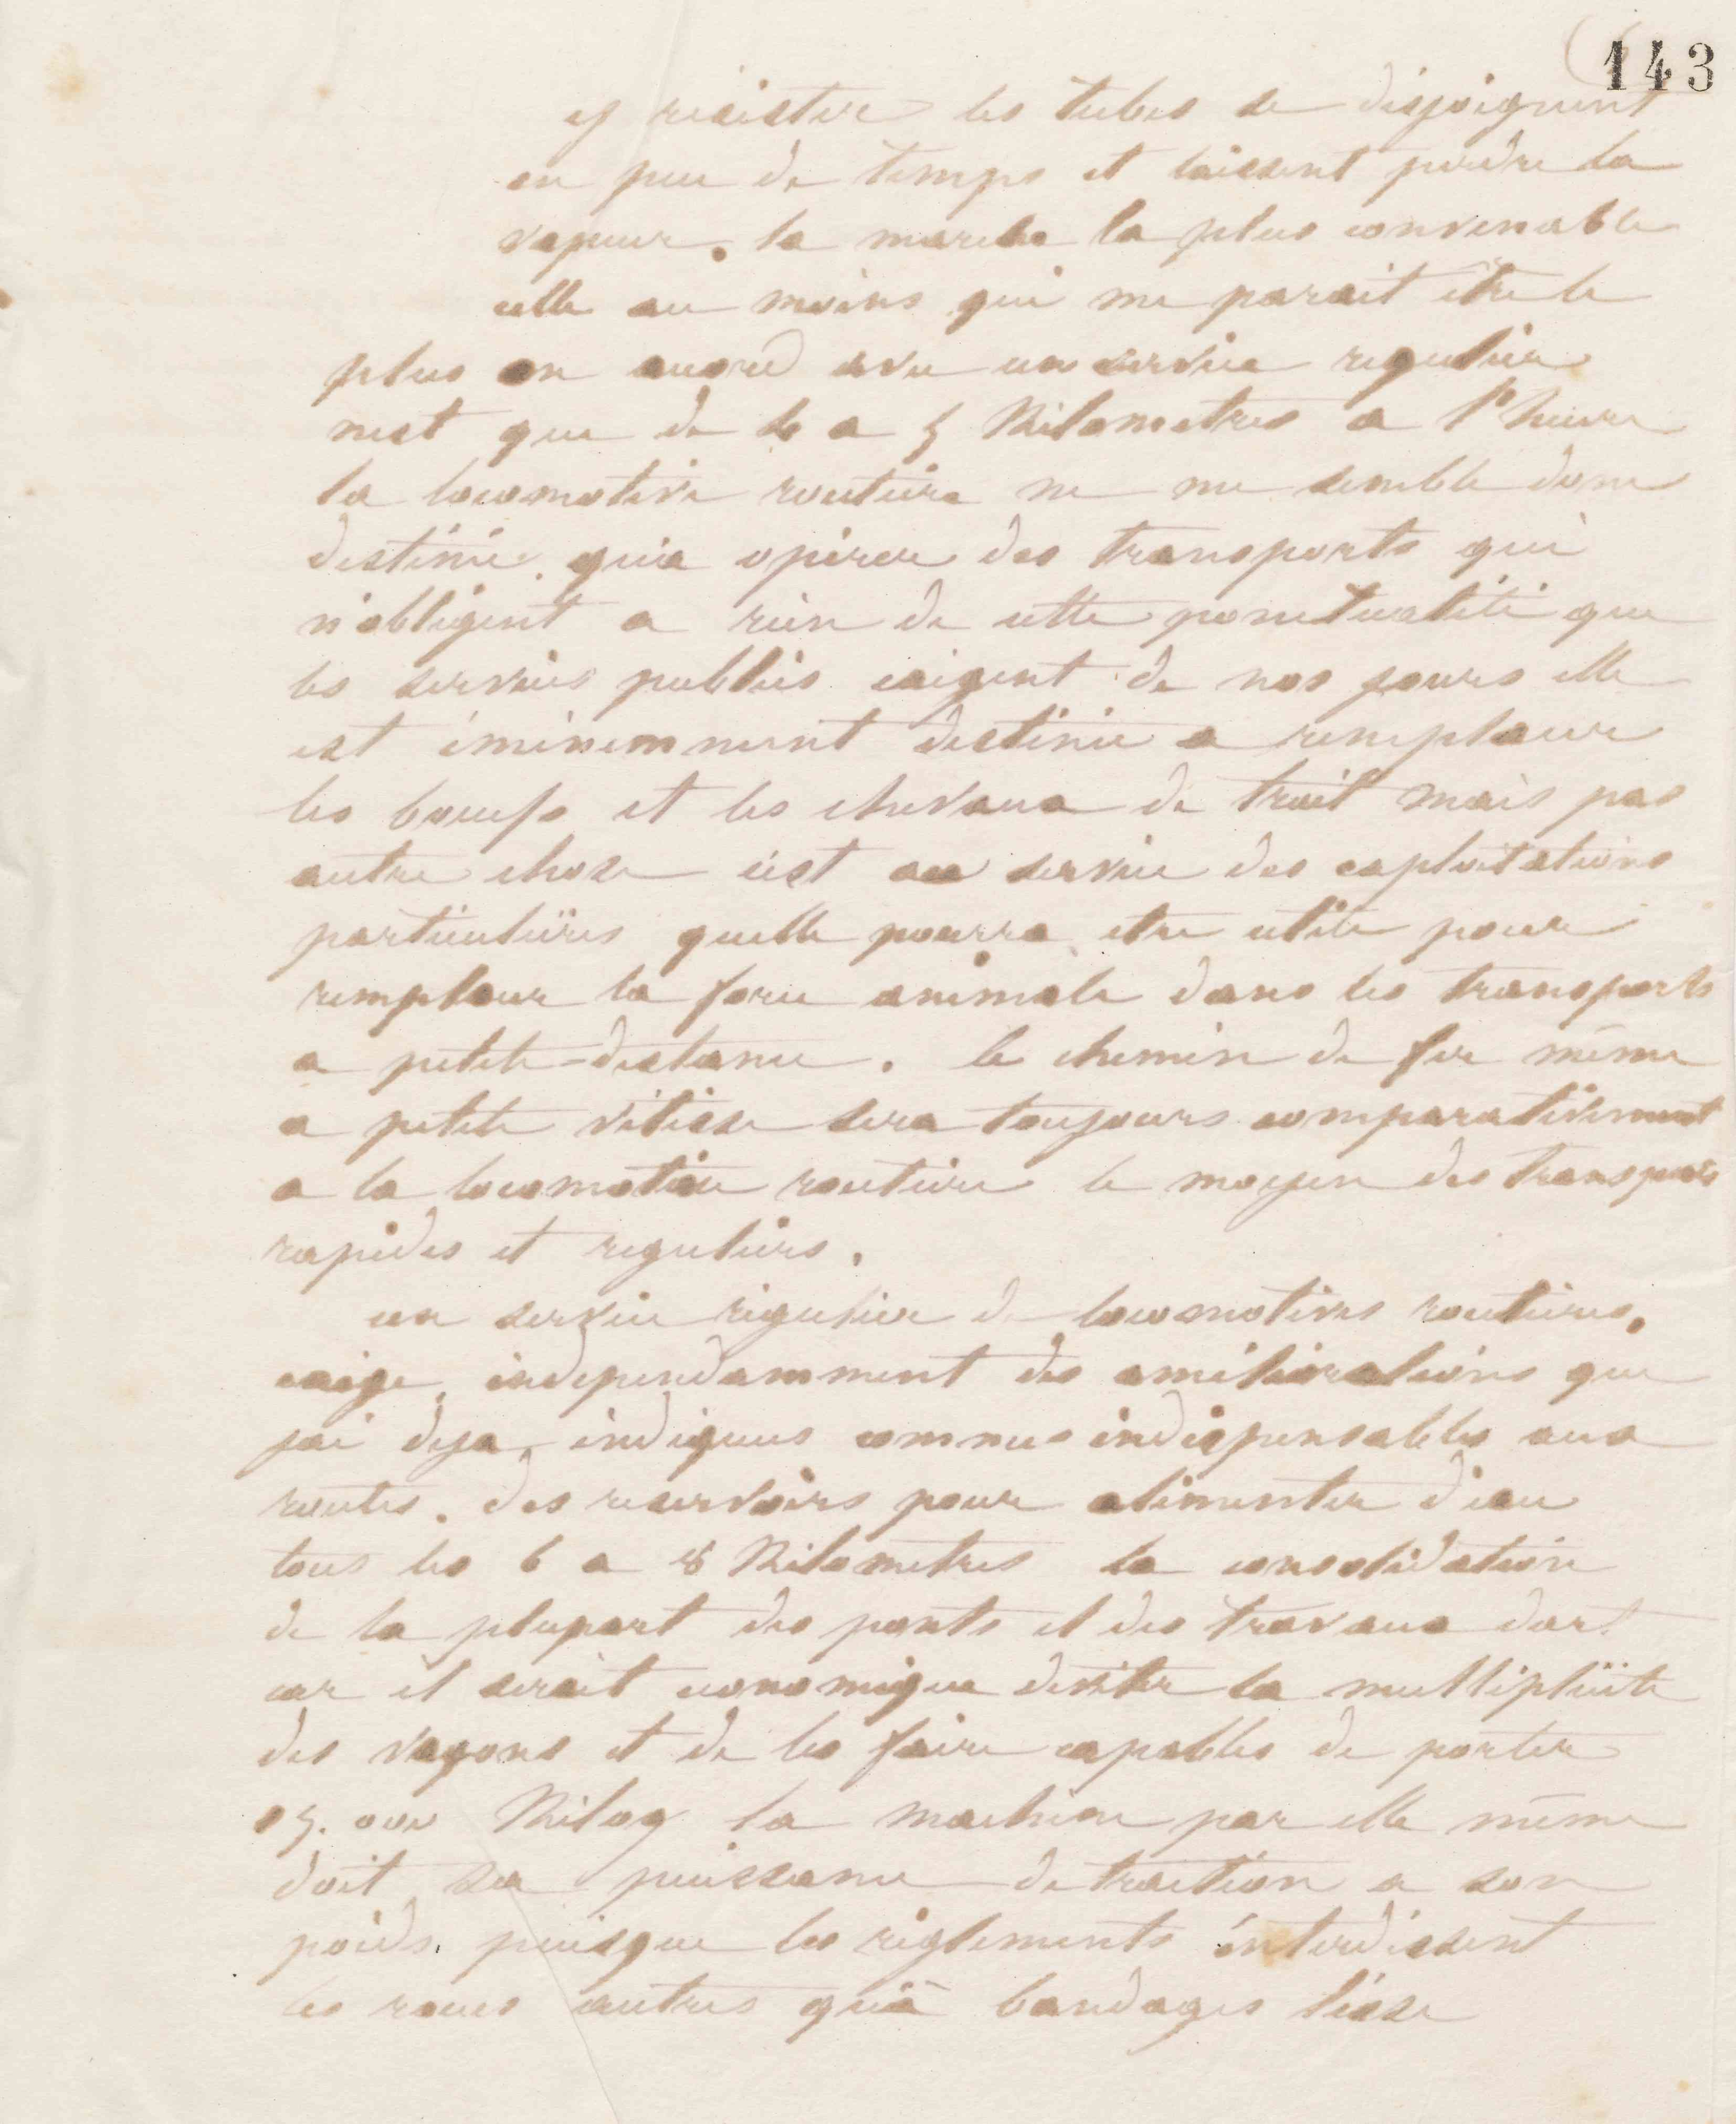 143
y resister les tubes se disjoignent
en peu de temps et laissent perdre la
vapeur. la marche la plus convenable
celle au moins qui me parait être le
plus en accord avec un service regulier
nest que de 4 a 5 Kilometres a l'heure
la locomotive routiere ne me semble donc
destinée qu'a opérer des transports qui
n'obligent a rien de cette ponctualité que
les services publics exigent de nos jours elle
est éminemment destinée a remplacer
les boeufs et les chevaux de trait mais pas
autre chose c'est au service des exploitations
particulières quelle pourra etre utile pour
remplacer la force animale dans les transports
a petite distance. le chemin de fer même
a petite vitesse sera toujours comparativement
a la locomotive routiere le moyen des transports
rapides et reguliers.
un service régulier de locomotives routières.
exige independamment des améliorations que
jai deja indiquees comme indispensables aux
routes. des reservoirs pour alimenter d'eau
tous les 6 a 8 Kilometres la consolidation
de la plupart des ponts et des travaux dart
car il serait economique deviter la multiplicite
des vagons et de les faire capables de porter
15.000 Kilog la machine par elle même
doit sa puissance de traction a son
poids. puisque les réglements interdissent
les roues autres qu'à bandages lisse